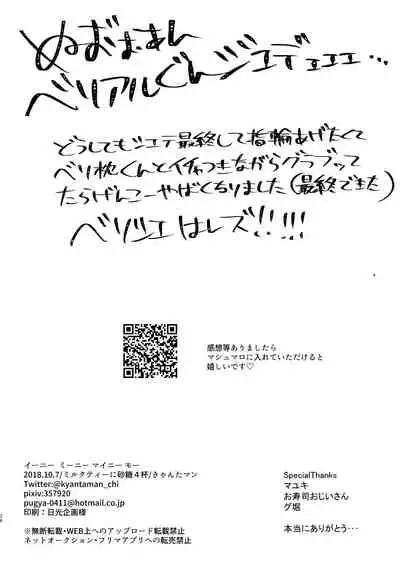 ぬおまあん
ベリアルくんジエデェェェ…
どうしてもジエテ最終して指輪あげたくて
ベリ枕くんとイチャつきながらグラブって
たらげんこーやばくなりました(最終できた)
ベリジエはレズ!!!!!
感想等ありましたら
マシュマロに入れていただけると
嬉しいです♡
イーニー ミーニー マイニー モー
2018.10.7/ミルクティーに砂糖4杯/きゃんたマン
Twitter:@kyantaman_chi
pixiv:357920
pugya-0411@hotmail.co.jp
印刷：日光企画様
※無断転載・WEB上へのアップロード転載禁止
ネットオークション・フリマアプリへの転売禁止
SpecialThanks
マユキ
お寿司おじいさん
グ堀
本当にありがとう…